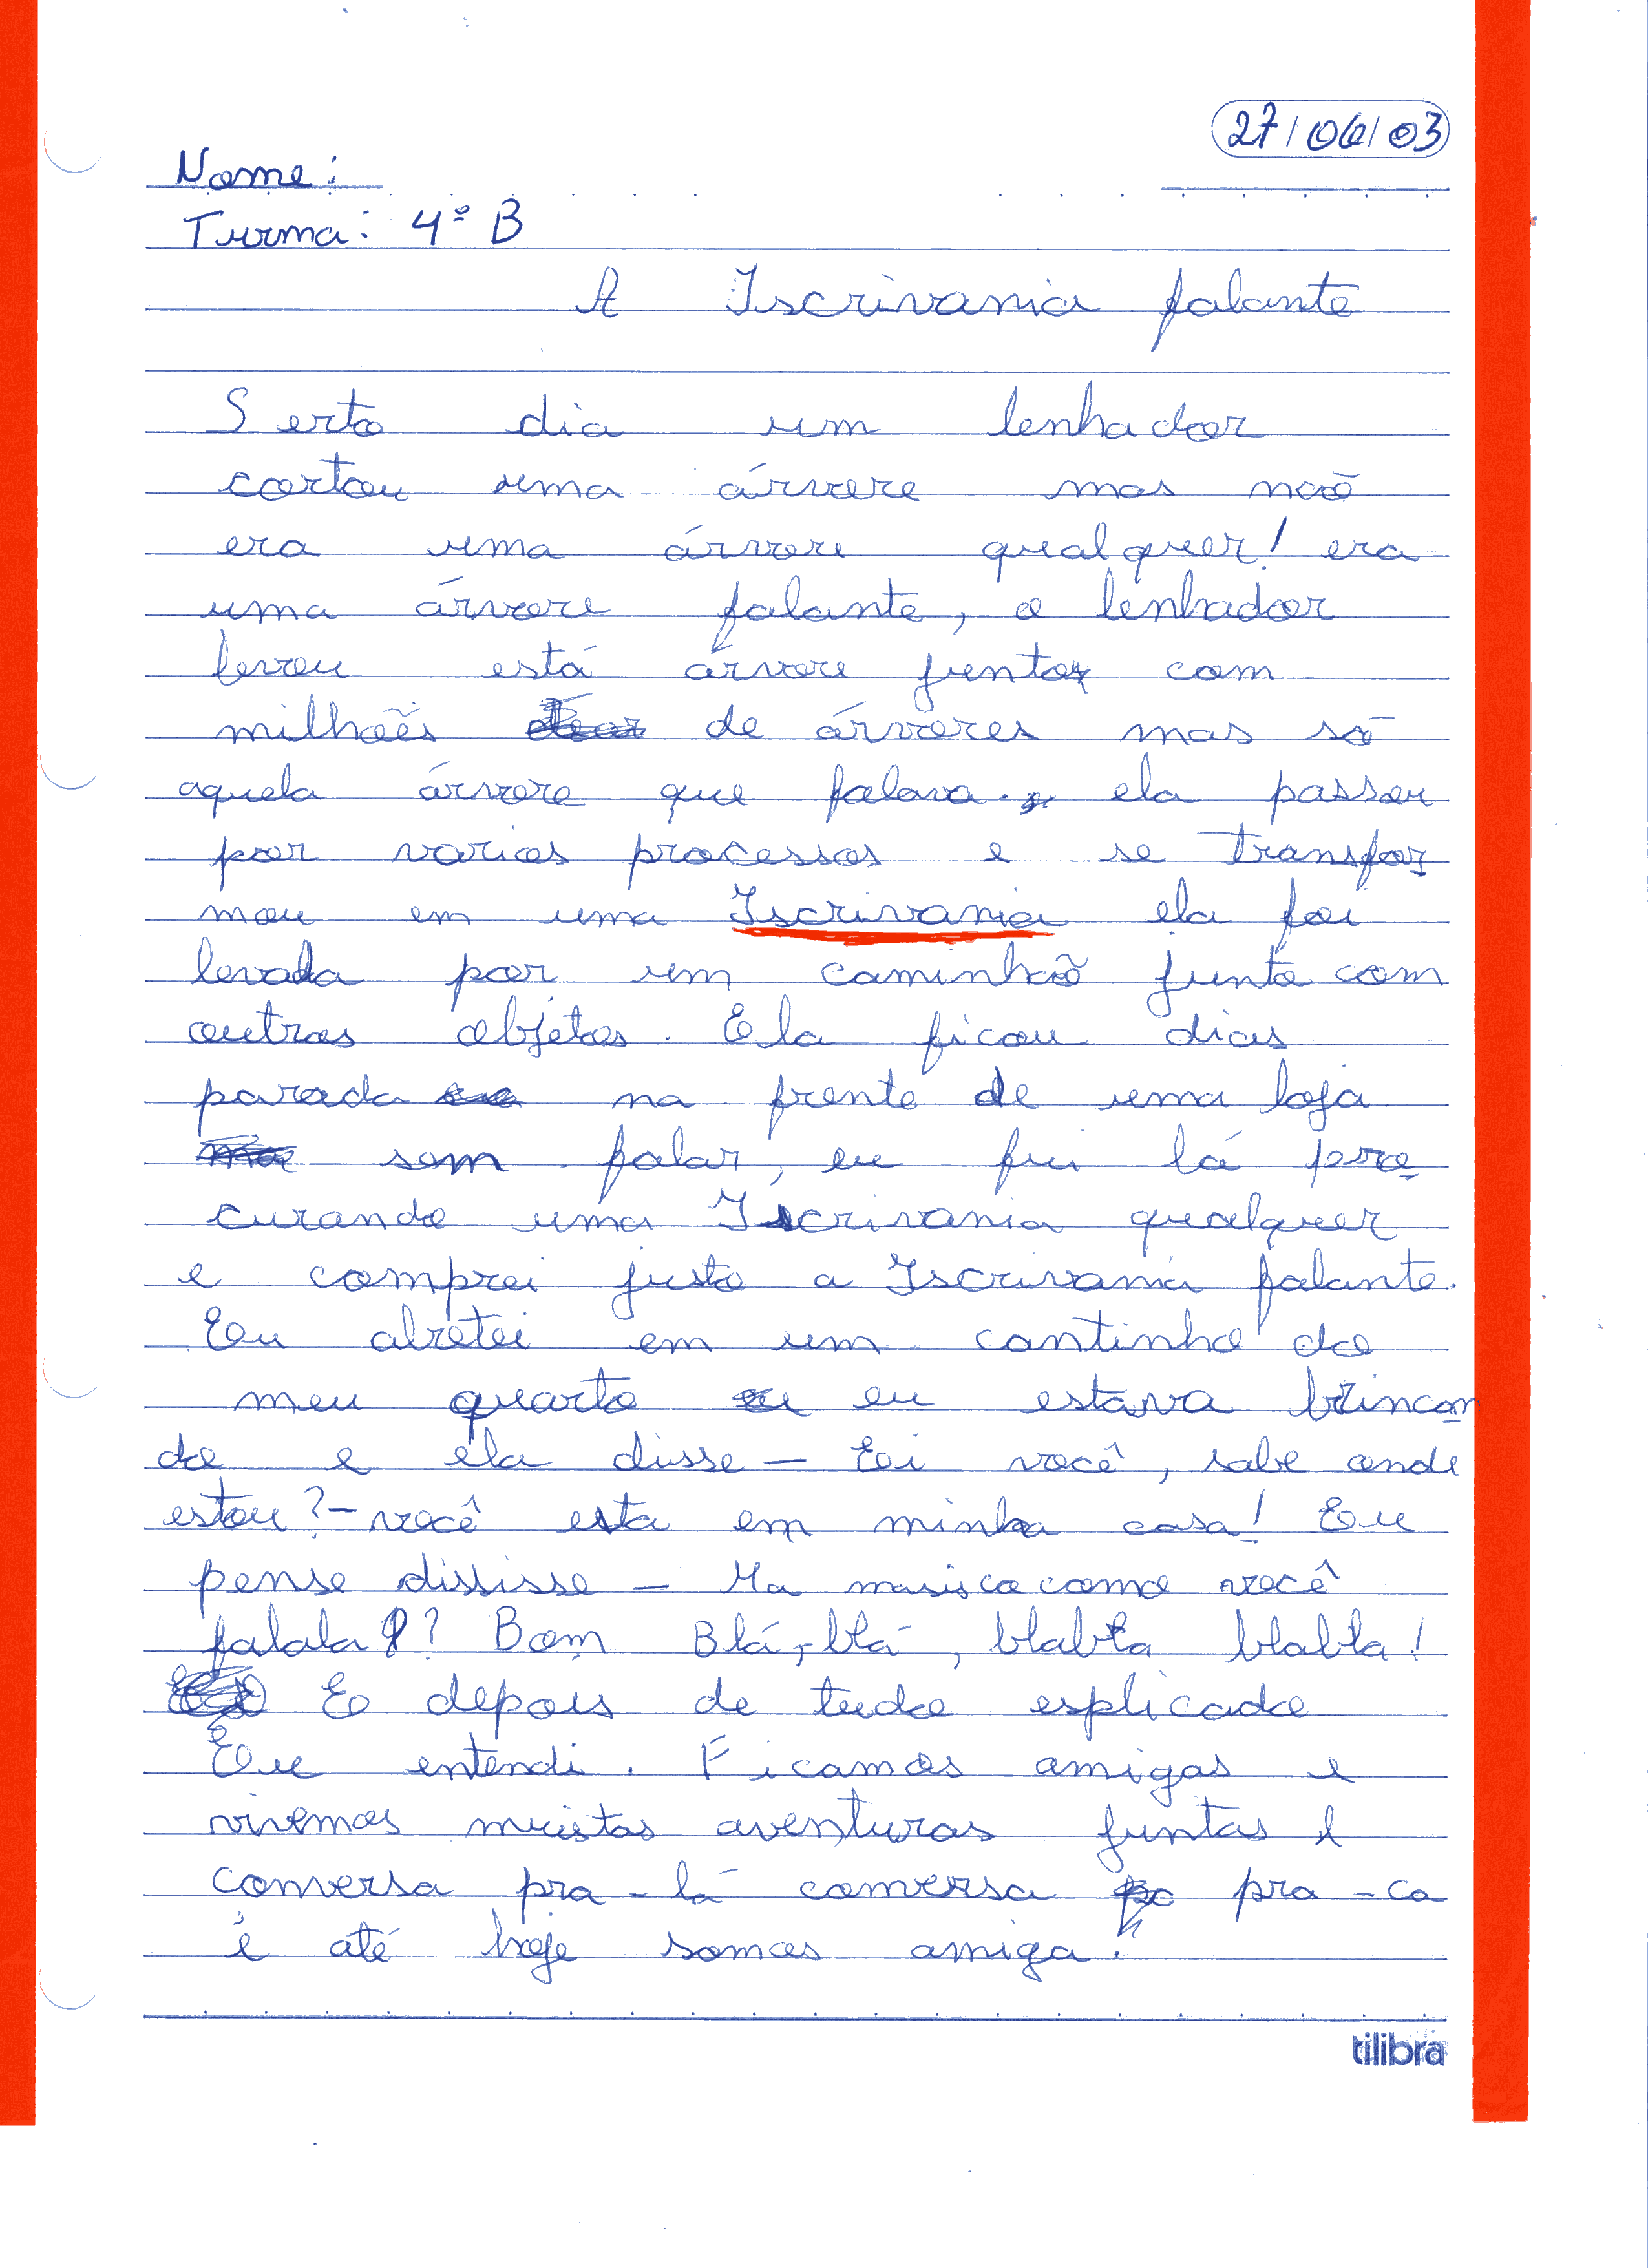 27/06/03
Nome:
Turma: 4º B
A Iscrivania falante
Serto dia um lenhador
cortou uma árvore mas não
era uma árvore qualquer! era
uma árvore falante, o lenhador
levou está árvore junto com
milhões de árvores mas só
aquela árvore que falava. ela passou
por varios processos e se transfor
mou em uma Iscrivania ela foi
levada por um caminhão junto com
outros objetos. Ela ficou dias
parada na frente de uma loja
sem falar, eu fui lá pro
curando uma Iscrivania qualquer
e comprei justo a Iscrivania falante.
Eu abretei em um cantinho do
meu quarto eu estava brincan
do e ela disse – Ei você, sabe onde
estou? – você esta em minha casa! Eu
pense dississe – Ma masisco como você
falala? Bom Blá, blá, blabla blabla!
E depois de tudo esplicado
Eu entendi. Ficamos amigas e
vivemos muistas aventuras juntas e
conversa pra-lá conversa pra-ca
e até hoje somos amiga!
tilibra